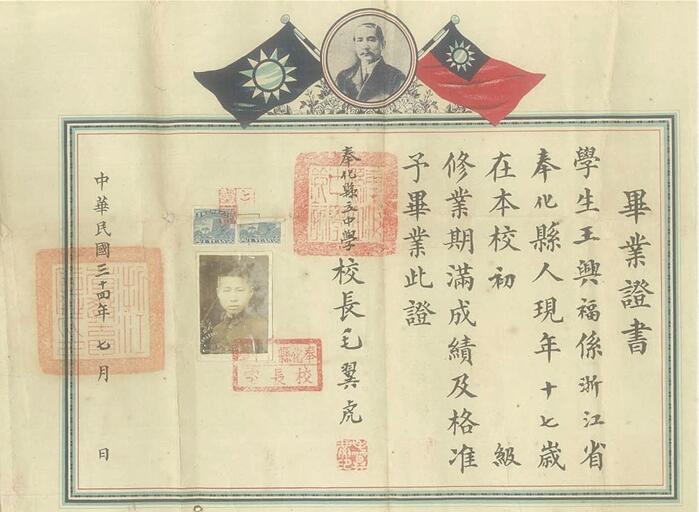 畢業證書
學生王興福係浙江省
奉化縣人現年十七歲
在本校初級
修業期滿成績及格准
予畢業此證
奉化縣立中學校長毛翼虎
中華民國三十四年七月 日